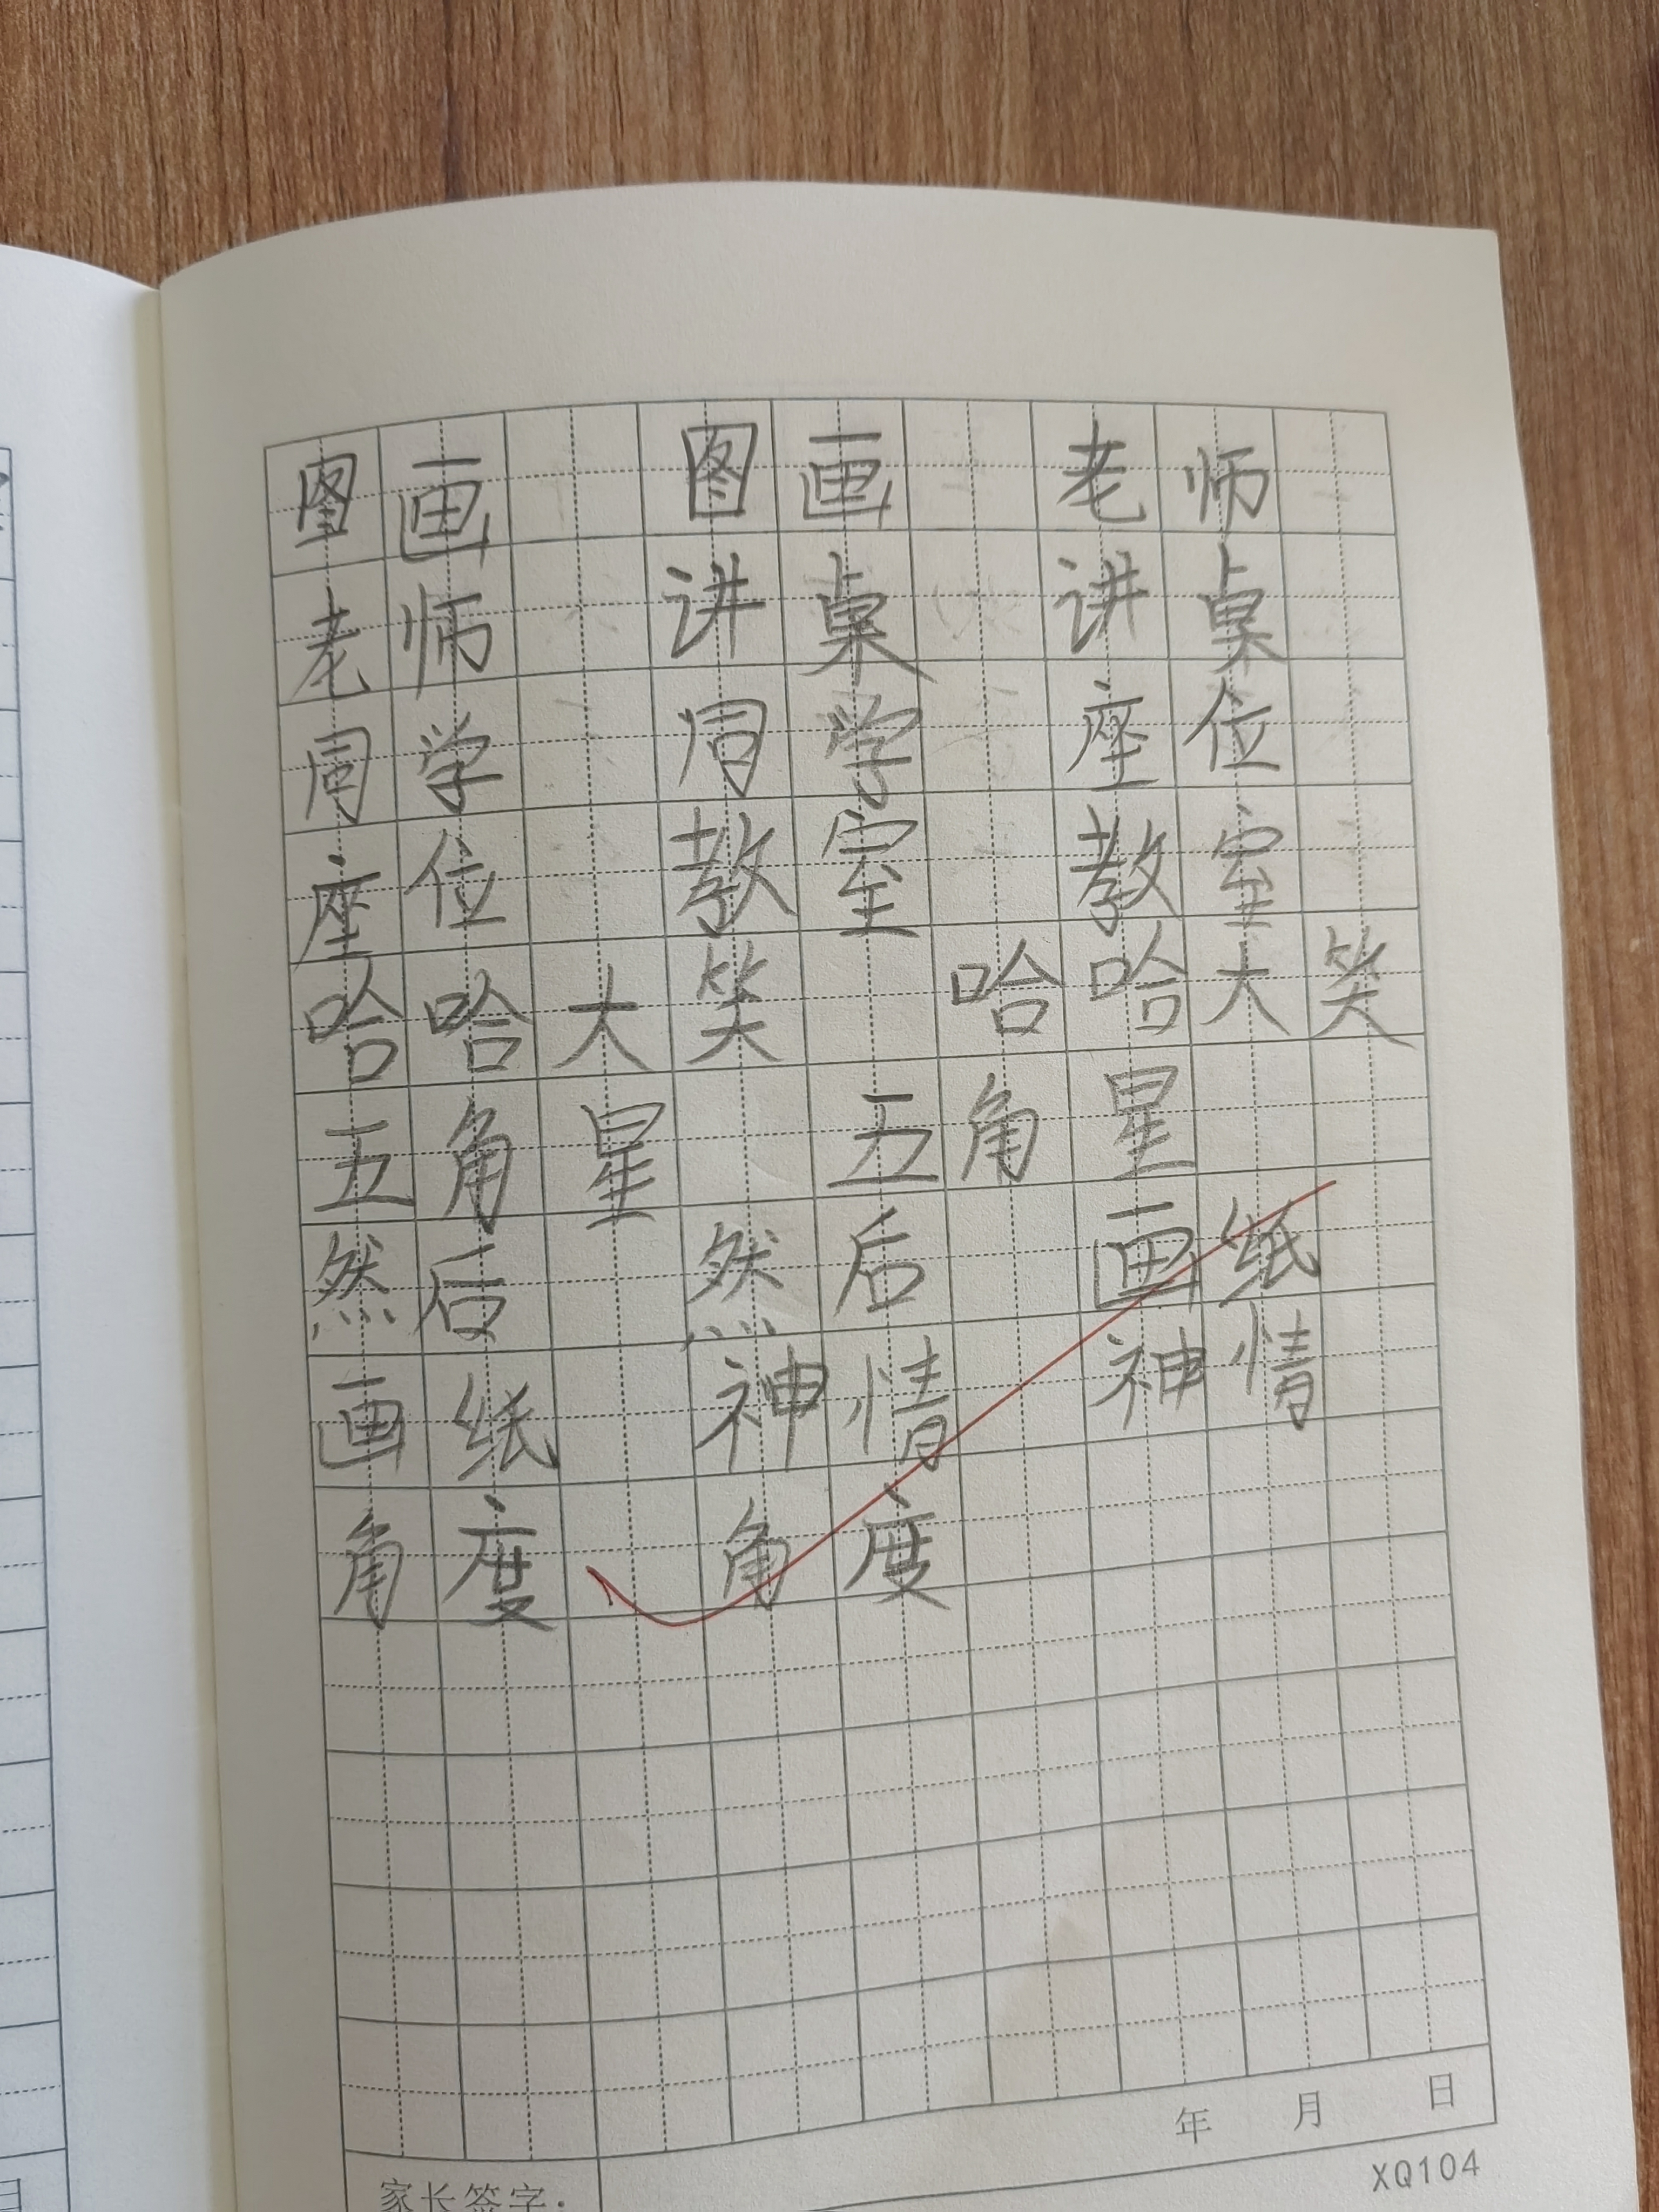 图画 图画 老师
老师 讲桌 讲桌
同学 同学 座位
座位 教室 教室
哈哈大笑 哈哈大笑
五角星 五角星
然后 然后 画纸
画纸 神情 神情
角度 角度
年 月 日
家长签字：
XQ104